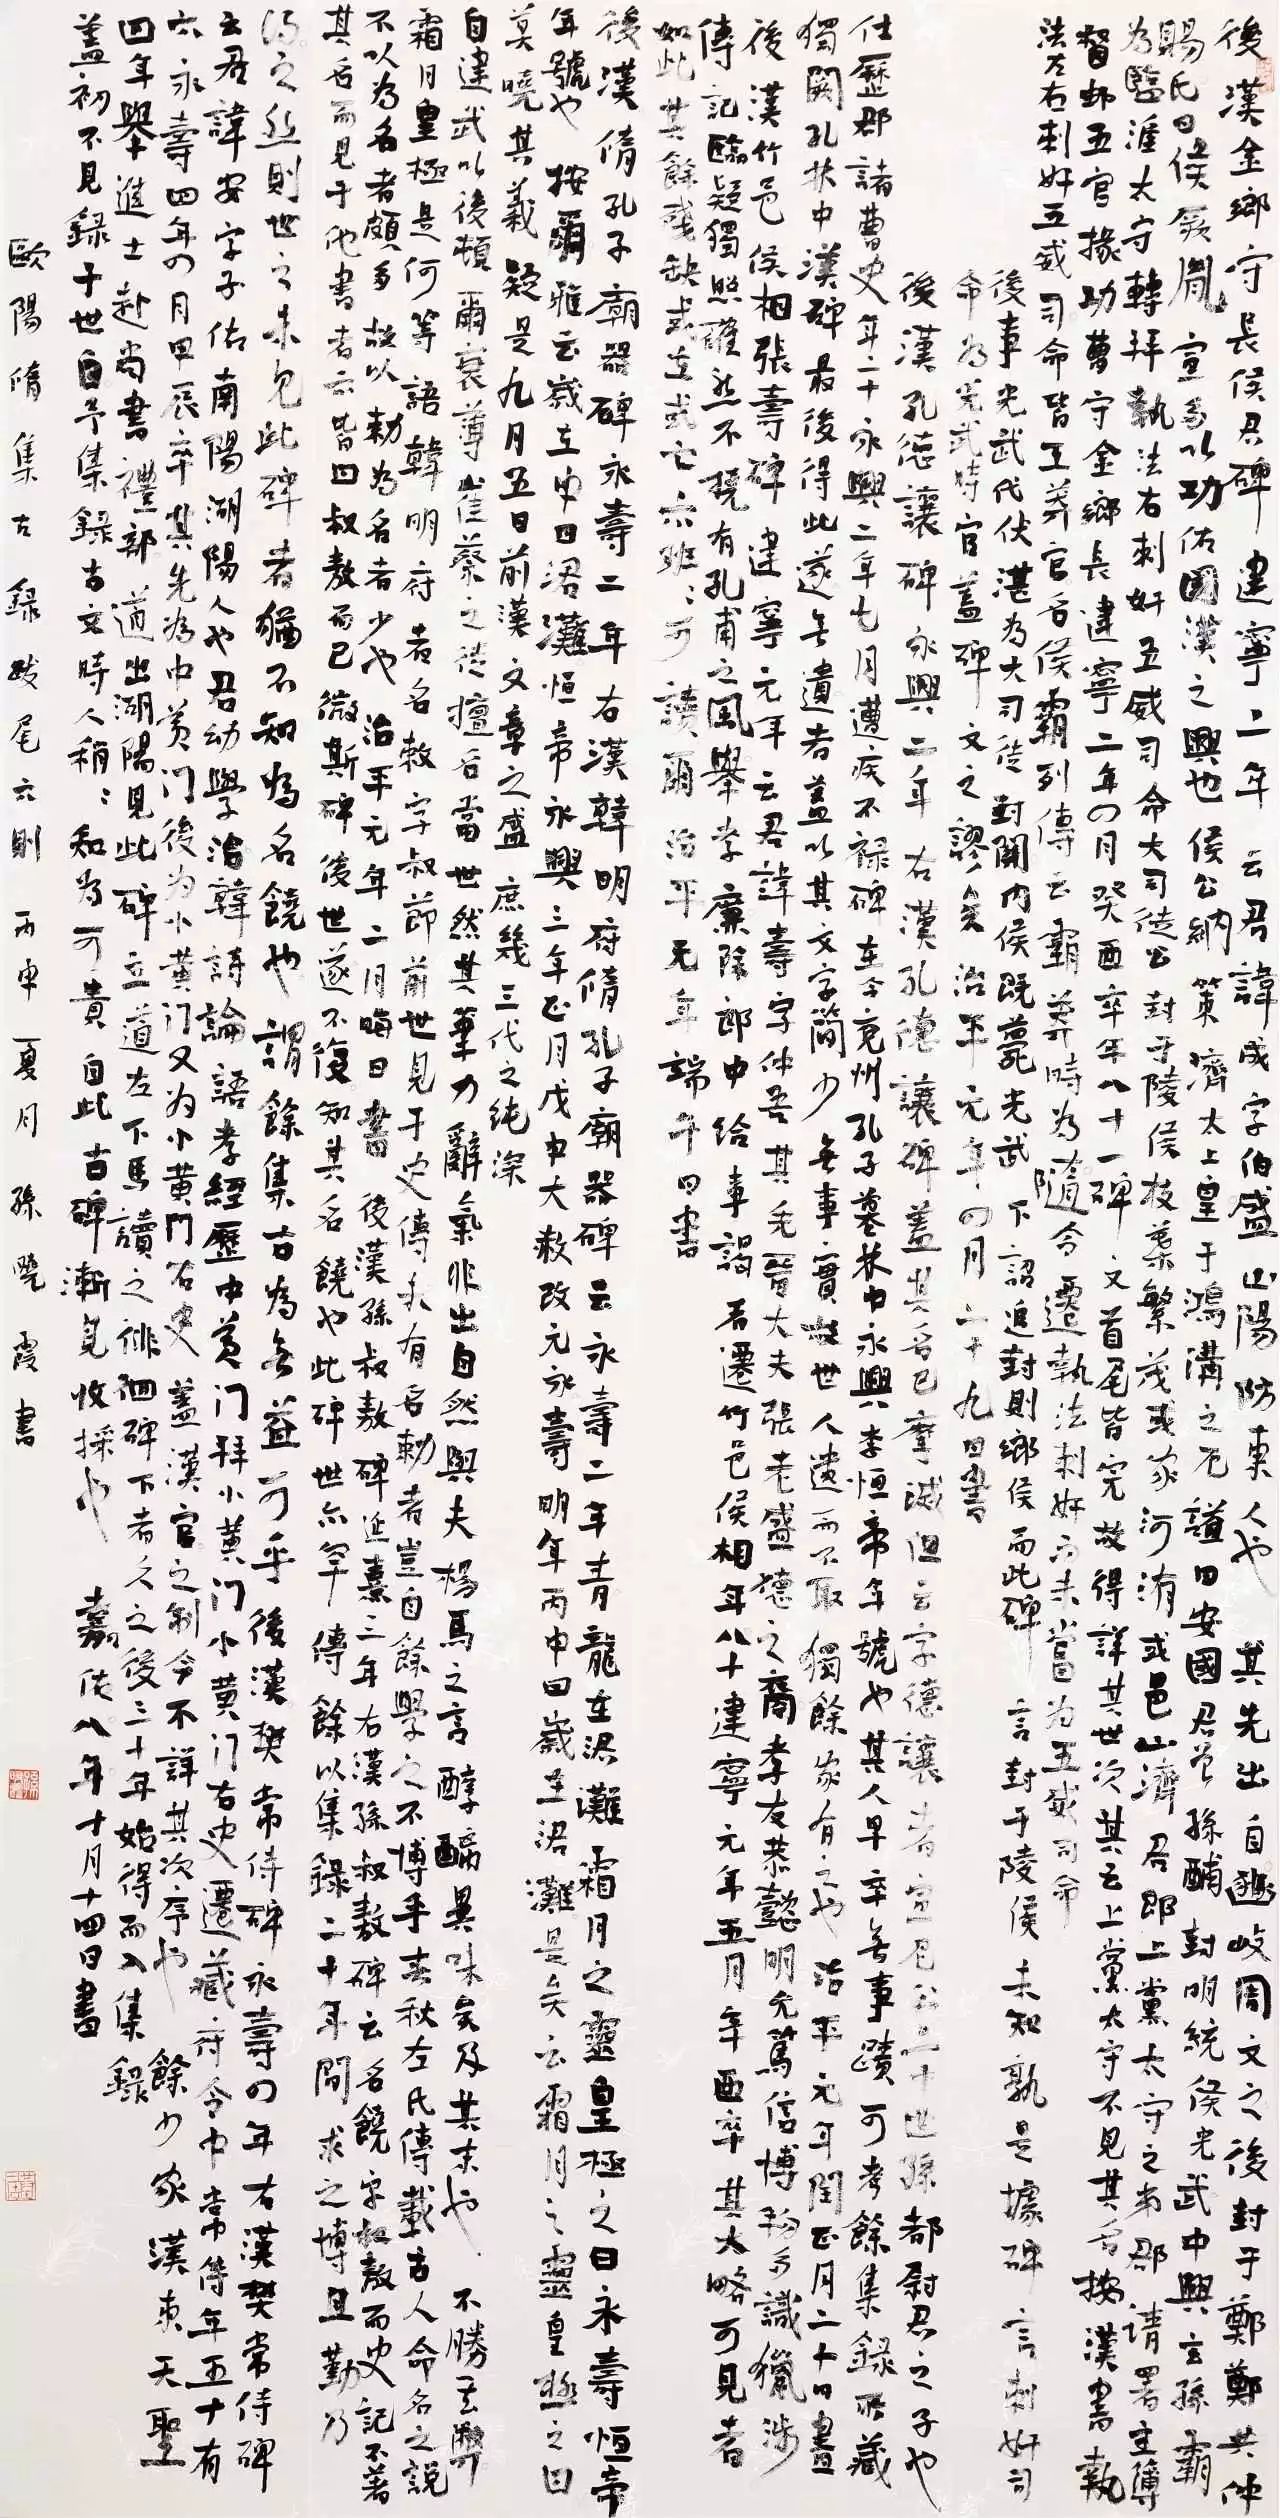 後漢金鄉守長侯君碑建寧二年云君諱成字伯盛山陽防東人也其先出自豳岐周文之後封于鄭鄭共仲
賜氏曰侯厥胤宣多以功佑國漢之興也侯公納策濟太上皇于鴻溝之厄謚曰安國君曾孫酺封明統侯光武中興玄孫霸
為臨淮太守轉拜執法右刺奸五威司命大司徒公封于陵侯枝葉繁茂或家河洧或邑山濟君即上黨太守之弟郡請署主簿
督郵五官掾功曹守金鄉長建寧二年四月癸酉卒年八十一碑文首尾皆完故得詳其世次其云上黨太守不見其名按漢書執
法左右刺奸五威司命皆王莽官名侯霸列傳云霸莽時為隨令遷執法刺奸而未嘗為五威司命
後事光武代伏湛為大司徒封關內侯既薨光武下詔追封則鄉侯而此碑言封于陵侯未知孰是據碑言刺奸司
命為光武時官蓋碑文之謬矣治平元年四月二十九日書
後漢孔德讓碑永興二年右漢孔德讓碑蓋其名已摩滅但云字德讓者宣尼公二十世孫都尉君之子也
仕歷郡諸曹史年二十永興二年七月遭疾不祿碑在今兗州孔子墓林中永興孝恒帝年號也其人早卒無事蹟可考餘集錄所藏
獨闕孔林中漢碑最後得此遂無遺者蓋以其文字簡少無事實故世人遺而不取獨餘家有之也治平元年閏正月二十日書
後漢竹邑侯相張壽碑建寧元年云君諱壽字仲吾其先晉大夫張老盛德之裔孝友恭懿明允篤信博物多識獵涉
傳記臨疑獨照確然不撓有孔甫之風舉孝廉除郎中給事謁者遷竹邑侯相年八十建寧元年五月辛酉卒其大略可見者
如此其餘殘缺或在或亡亦班班可讀爾治平元年端午日書
後漢脩孔子廟器碑永壽二年右漢韓明府脩孔子廟器碑云永壽二年青龍在涒灘霜月之靈皇極之日永壽恒帝
年號也按爾雅云歲在申曰涒灘恒帝永興三年正月戊申大赦改元永壽明年丙申曰歲在涒灘是矣云霜月之靈皇極之日
莫曉其義疑是九月五日前漢文章之盛庶幾三代之純深
自建武以後頓爾衰薄崔蔡之徒擅名當世然其筆力辭氣非出自然與夫楊馬之言醇醨異味矣及其末也不勝其弊
霜月皇極是何等語韓明府者名敕字叔節前世見于史傳未有名勅者豈自餘學之不博乎春秋左氏傳載古人命名之說
不以為名者頗多故以勅為名者少也治平元年二月晦日書後漢孫叔敖碑延熹三年右漢孫叔敖碑云名饒字叔敖而史記不著
其名而見于他書者亦皆曰叔敖而已微斯碑後世遂不復知其名饒也此碑世亦罕傳餘以集錄二十年間求之博且勤乃
得之然則世之未見此碑者猶不知為名饒也謂餘集古為無益可乎後漢樊常侍碑永壽四年右漢樊常侍碑
云君諱安字子佑南陽湖陽人也君幼學治韓詩論語孝經歷中黃门拜小黃门小黃门右史遷藏府令中常侍年五十有
六永壽四年四月甲辰卒其先為中黃门後為小黄门又为小黄門右史蓋漢官之制今不詳其次序也餘少家漢東天聖
四年舉進士赴尚書禮部道出湖陽見此碑立道左下馬讀之徘徊碑下者久之後三十年始得而入集錄
蓋初不見錄于世自予集錄古文時人稍稍知為可貴自此古碑漸見收採也嘉佑八年十月十四日書
歐陽脩集古錄跋尾六則丙申夏月孫曉霞書